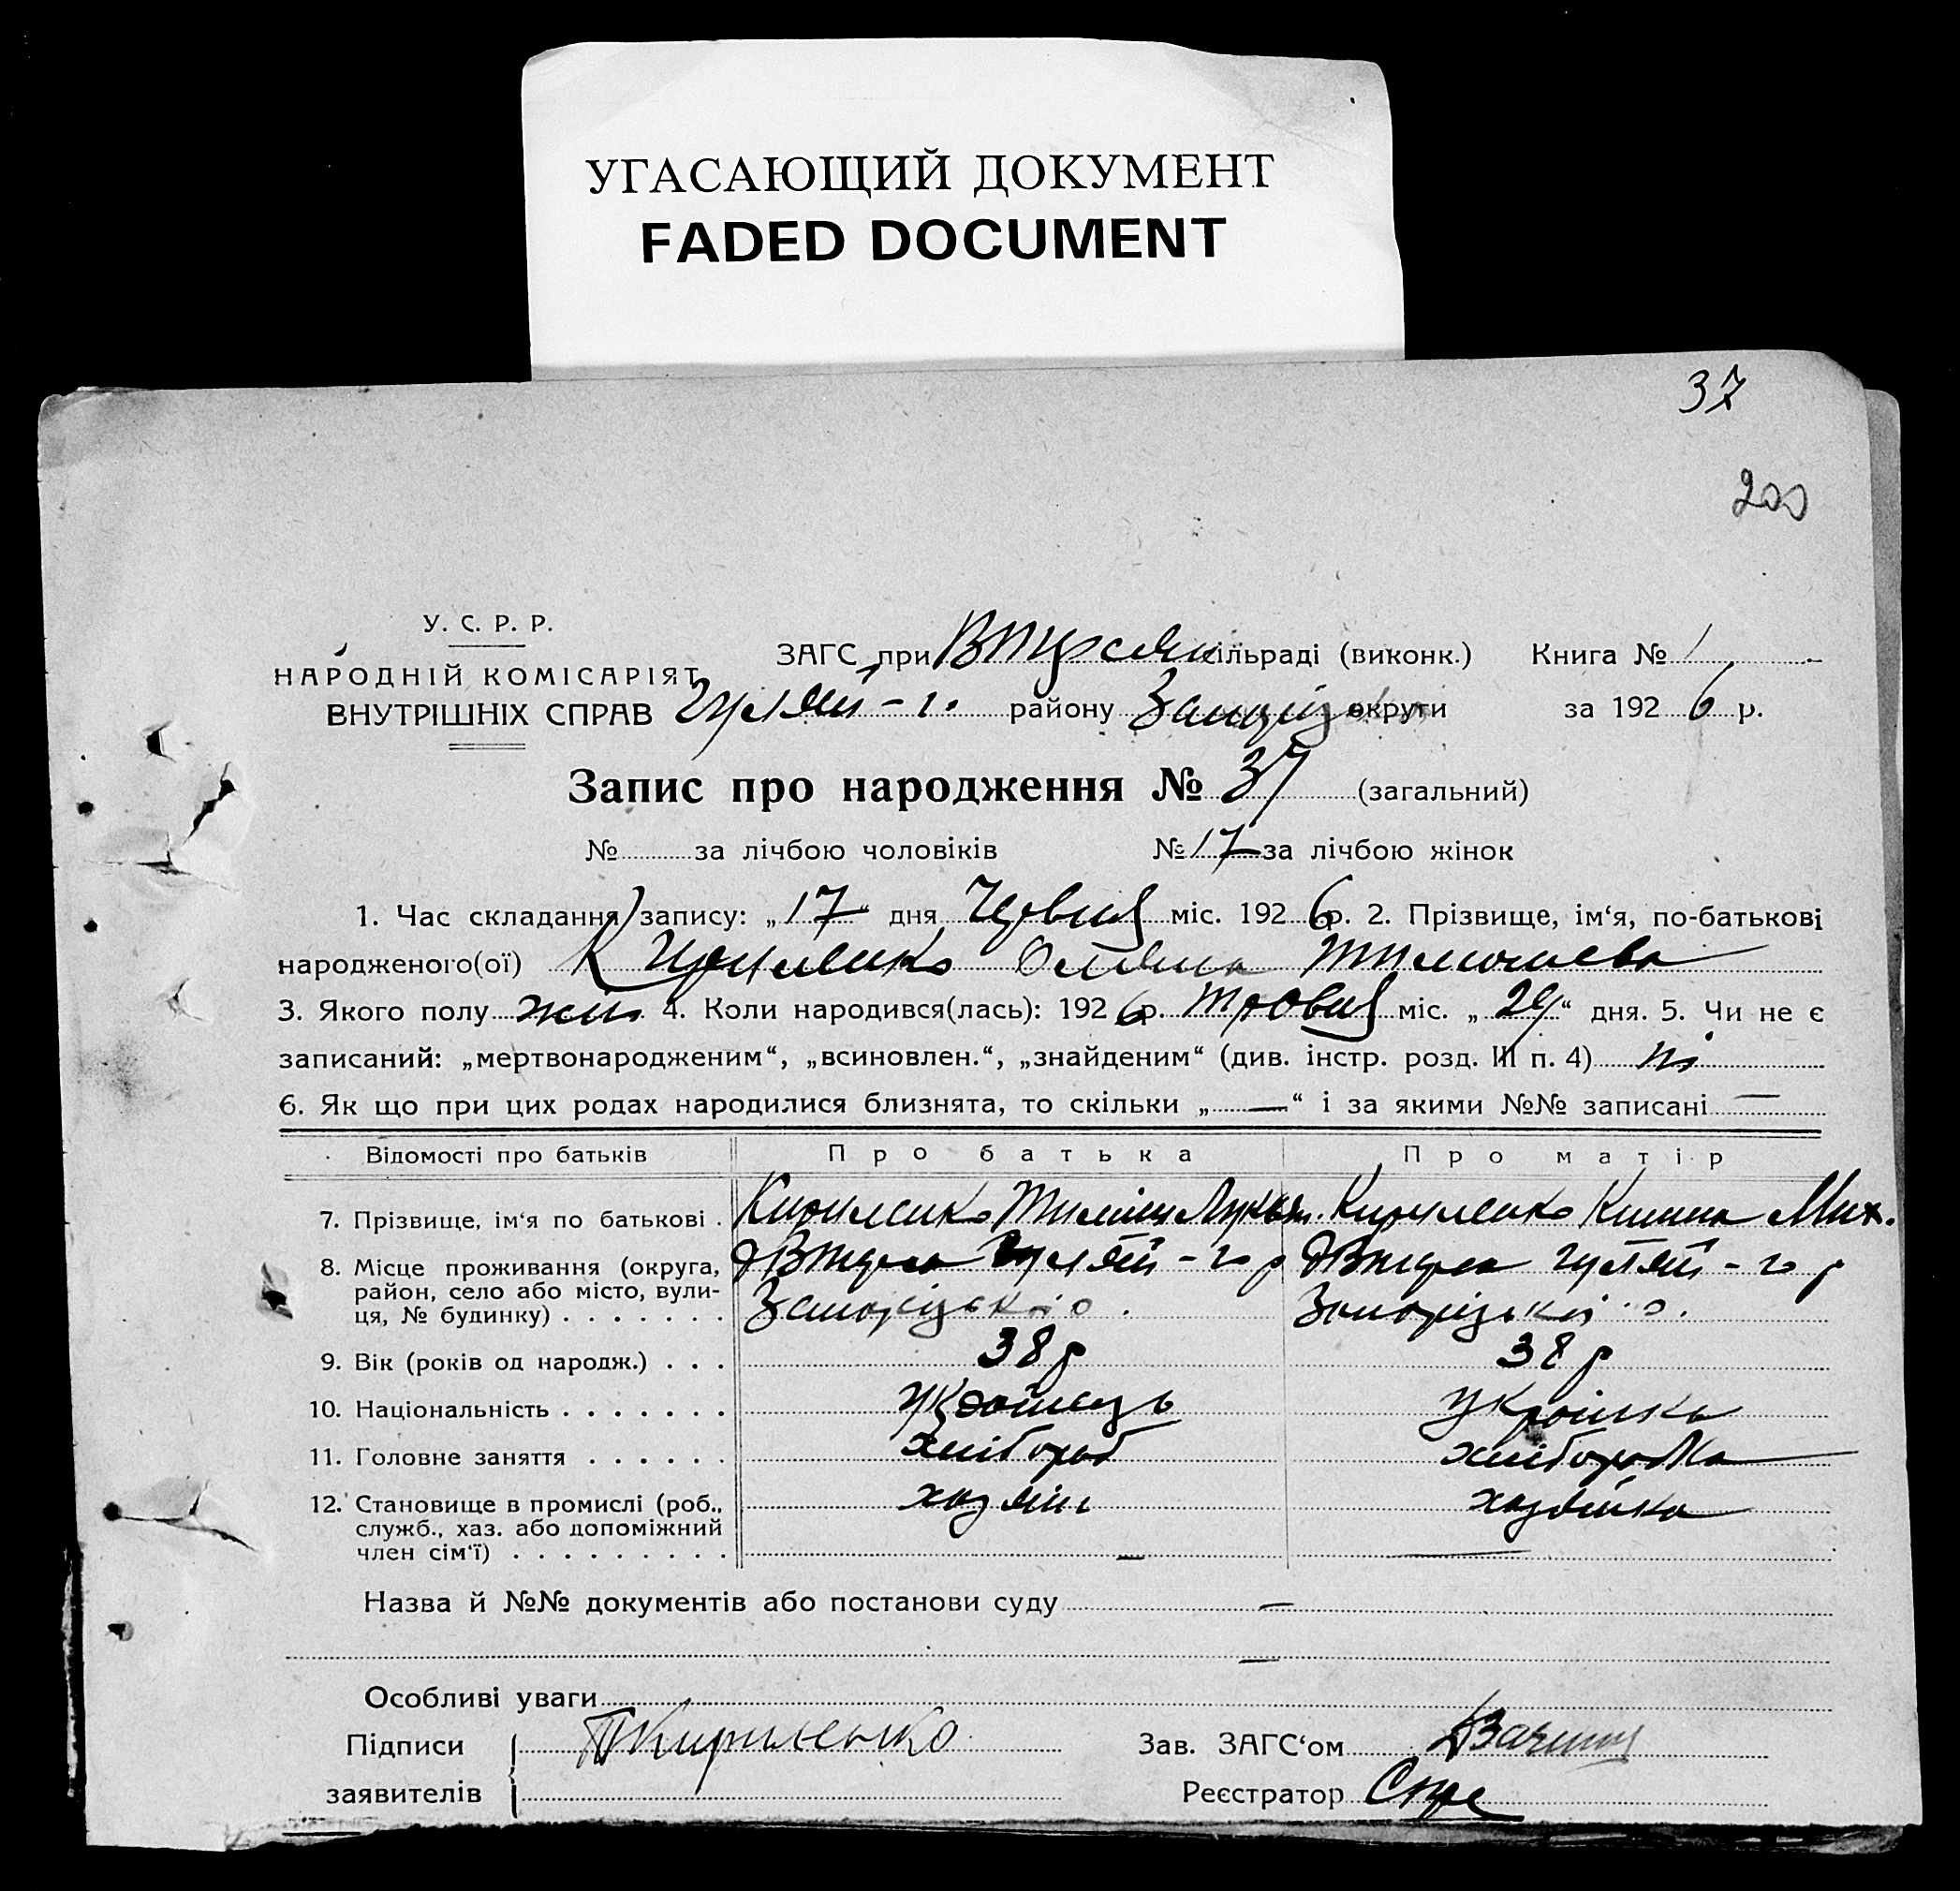 УГАСАЮЩИЙ ДОКУМЕНТ
FADED DOCUMENT
37
200
У. С. Р. Р.
НАРОДНІЙ КОМІСАРІЯТ
ВНУТРІШНІХ СПРАВ
ЗАГС при сільраді (виконк.) Книга № 1
Гуляй-г. району Запоріз округи за 1926 р.
Запис про народження № 37 (загальний)
№ за лічбою чоловіків № 17 за лічбою жінок
1. Час складання запису: „17“ дня Червня міс. 1926 р. 2. Прізвище, ім‘я, по-батькові
народженого(ої) Кириленко Тимошева
3. Якого полу жін. 4. Коли народився(лась): 1926 р. Травня міс. „29“ дня. 5. Чи не є
записаний: „мертвонародженим“, „всиновлен.“, „знайденим“ (див. інстр. розд. III п. 4) ні
6. Як що при цих родах народилися близнята, то скільки „—“ і за якими №№ записані —
Відомості про батьків Про батька Про матір
7. Прізвище, ім‘я по батькові . Кириленко Лукьян. Кириленко Мих.
8. Місце проживання (округа, район, село або місто, вулиця, № будинку) . . . . . . . Гуляй-го р Гуляй-го р
Запорізької о. Запорізької о.
9. Вік (років од народж.) . . . 38 р 38 р
10. Національність . . . . . . . Українець Українка
11. Головне заняття . . . . . . хлібороб хліборобка
12. Становище в промислі (роб., служб., хаз. або допоміжний член сім‘ї) . . . . . . . . . хазяїн хазяйка
Назва й №№ документів або постанови суду —
—
Особливі уваги
Підписи Ткириленко Зав. ЗАГС‘ом
заявителів Реєстратор